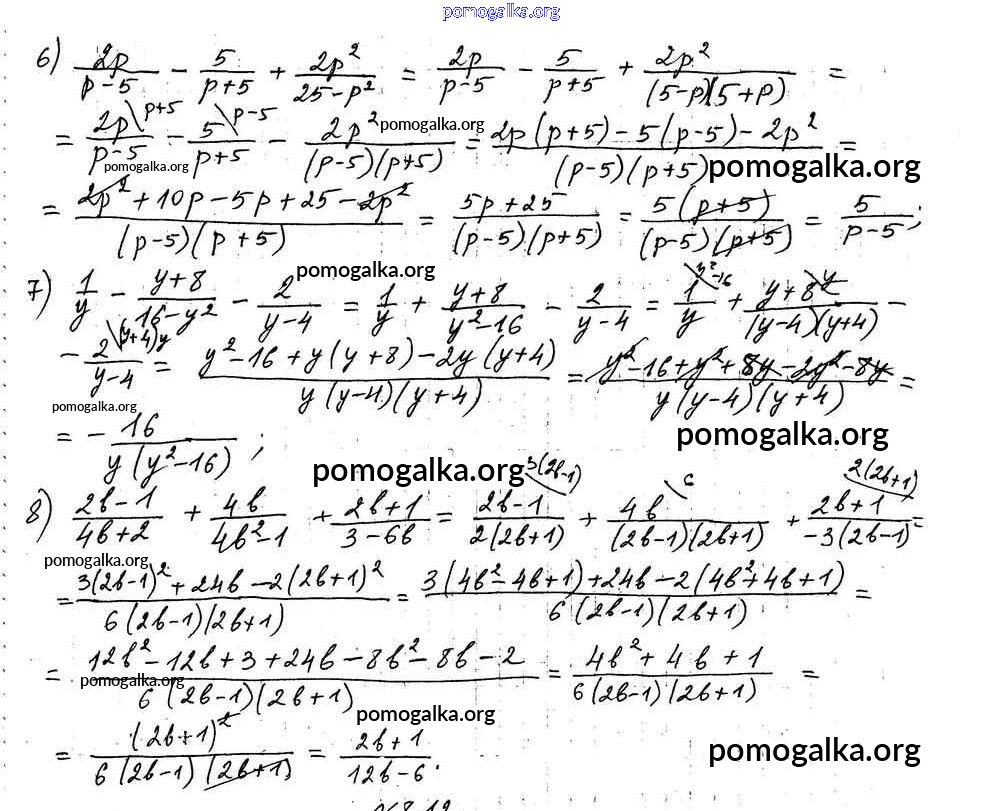 pomogalka.org
6) 2p/(p-5) - 5/(p+5) + 2p²/(25-p²) = 2p/(p-5) - 5/(p+5) + 2p²/((5-p)(5+p)) =
= 2p\p+5/(p-5) - 5\p-5/(p+5) - 2p²/((p-5)(p+5)) = (2p(p+5)-5(p-5)-2p²)/((p-5)(p+5)) =
pomogalka.org
pomogalka.org
pomogalka.org
= (2p²+10p-5p+25-2p²)/((p-5)(p+5)) = (5p+25)/((p-5)(p+5)) = 5(p+5)/((p-5)(p+5)) = 5/(p-5);
pomogalka.org
7) 1/y - (y+8)/(16-y²) - 2/(y-4) = 1/y + (y+8)/(y²-16) - 2/(y-4) = 1\y²-16/y + (y+8)\y/((y-4)(y+4)) -
- 2\(y+4)y/(y-4) = (y²-16+y(y+8)-2y(y+4))/(y(y-4)(y+4)) = (y²-16+y²+8y-2y²-8y)/(y(y-4)(y+4)) =
pomogalka.org
= - 16/(y(y²-16));
pomogalka.org
pomogalka.org
8) (2b-1)/(4b+2) + 4b/(4b²-1) + (2b+1)/(3-6b) = (2b-1)\3(2b-1)/(2(2b+1)) + 4b\6/((2b-1)(2b+1)) + (2b+1)\2(2b+1)/(-3(2b-1)) =
pomogalka.org
= (3(2b-1)²+24b-2(2b+1)²)/(6(2b-1)(2b+1)) = (3(4b²-4b+1)+24b-2(4b²+4b+1))/(6(2b-1)(2b+1)) =
= (12b²-12b+3+24b-8b²-8b-2)/(6(2b-1)(2b+1)) = (4b²+4b+1)/(6(2b-1)(2b+1)) =
pomogalka.org
pomogalka.org
= (2b+1)²/(6(2b-1)(2b+1)) = (2b+1)/(12b-6).
pomogalka.org